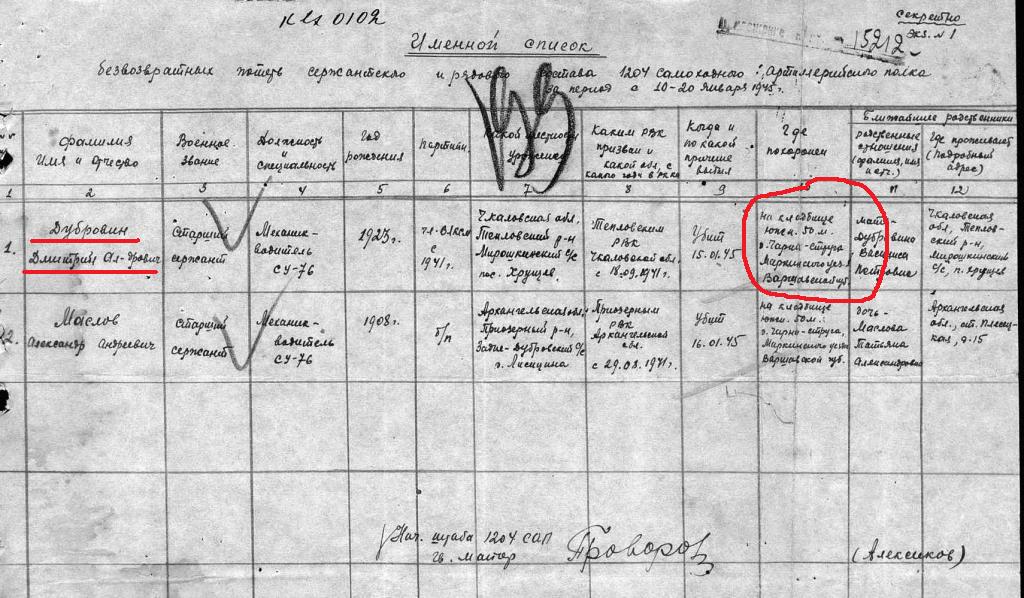 Кля 0102
Секретно
Экз. № 1
15212
Именной список
безвозвратных потерь сержантского и рядового состава 1204 самоходного артиллерийского полка
за период с 10-20 января 1945 г.
Фамилия
Имя и Отчество
Военное
звание
Должность
и
специальность
Год
рождения
Партийн.
Какой местности
уроженец
Каким РВК
призван и
какой обл., с
какого года в РККА
Когда и
по какой
причине
выбыл
Где
похоронен
Ближайшие родственники
родственные
отношения
(фамилия, имя
и отч.)
Где проживает
(Подробный
адрес)
1 2 3 4 5 6 7 8 9 10 11 12
1.
Дубровин
Дмитрий Ал-дрович
Старший
сержант
Механик-
водитель
СУ-76
1923 г.
чл. ВЛКСМ
с
1941 г.
Чкаловская обл,
Тепловский р-н
Мирошкинский с/с
пос. Хрущев
Тепловским
РВК
Чкаловской обл.
с 18.09.1941 г.
Убит
15.01.45
на кладбище
южн. 50 м.
Варшавской губ.
мать-
Дубровина
Василиса
Петровна
Чкаловская
обл, Теплов-
ский р-н,
Мирошкинский
с/с, п. Хрущев
2.
Маслов
Александр Андреевич
Старший
сержант
Механик-
водитель
СУ-76
1908 г.
б/п
Архангельская обл.
Приозерный р-н,
Задне-Дубровский с/с
д. Лисицина
Приозерным
РВК
Архангельской
обл.
с 29.08.1941 г.
Убит
16.01.45
на кладбище
южн. 50 м.
Варшавской губ.
дочь-
Маслова
Татьяна
Александровна
Архангельская
обл., ст. Плесец-
кая, д-15
Нач. штаба 1204 САП
гв. майор
(Алексиков)